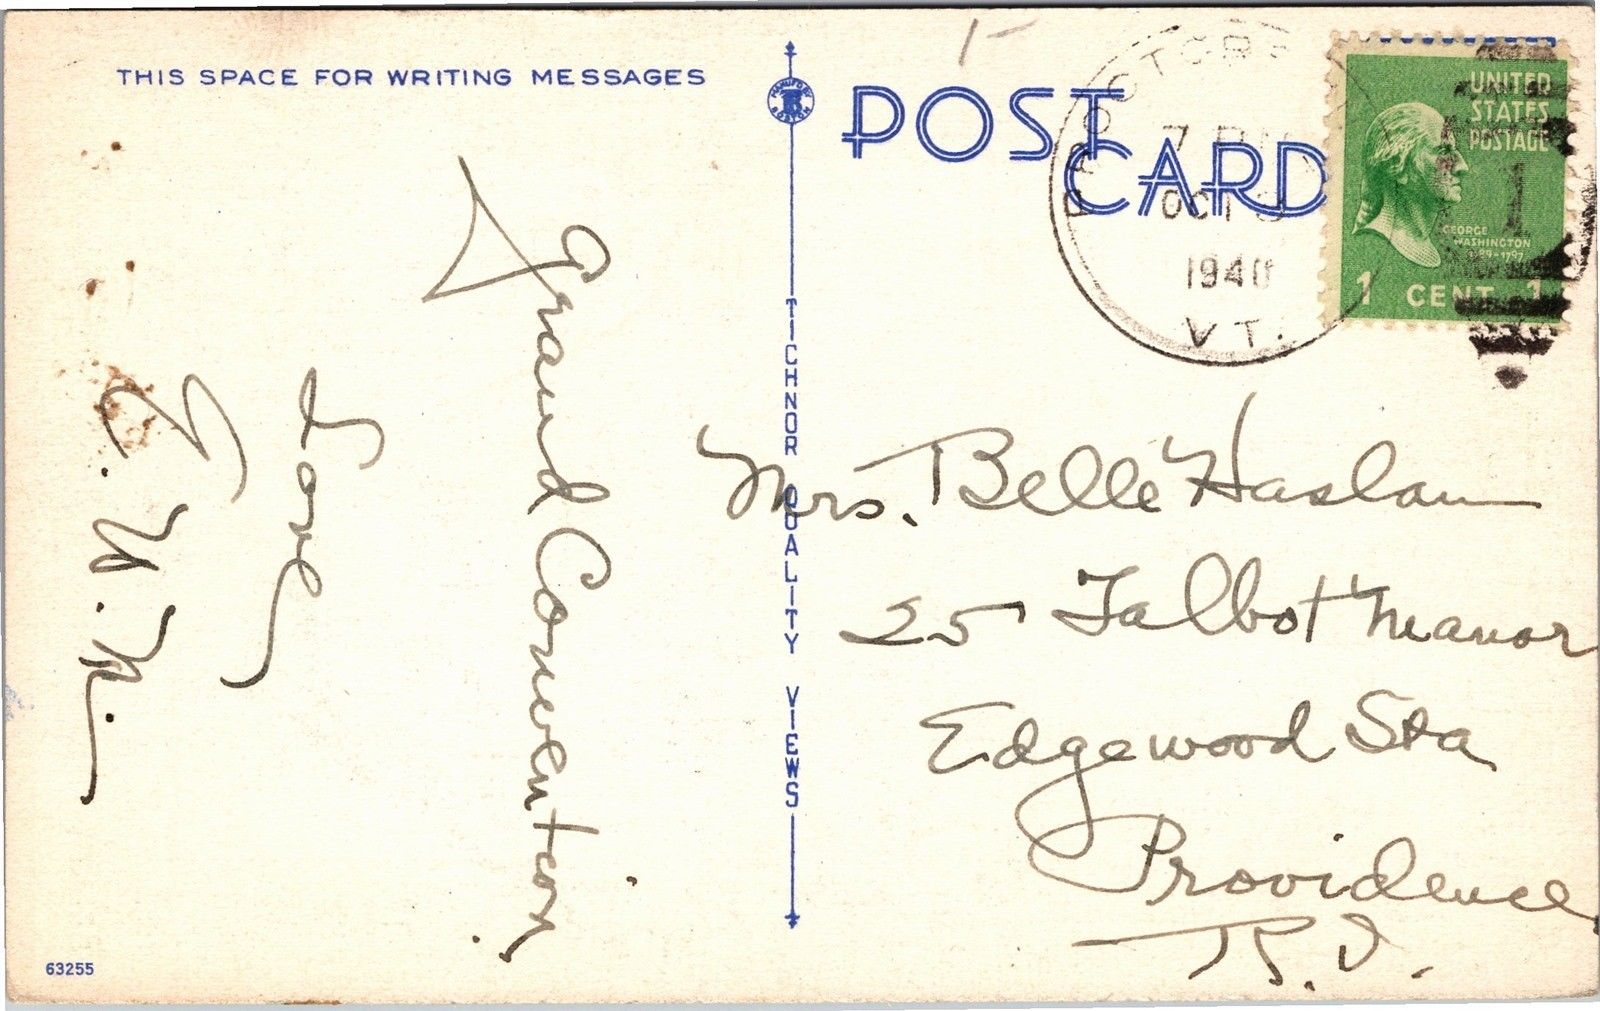 THIS SPACE FOR WRITING MESSAGES
Grand Convention.
Love
C. W. N.
63255
TICHNOR QUALITY VIEWS
POST CARD
VT.
OCT
1940
UNITED
STATES
POSTAGE
GEORGE
WASHINGTON
1789-1797
1 CENT 1
Mrs. Belle Haslam
25 Talbot Manor
Edgewood Sta
Providence
R.I.